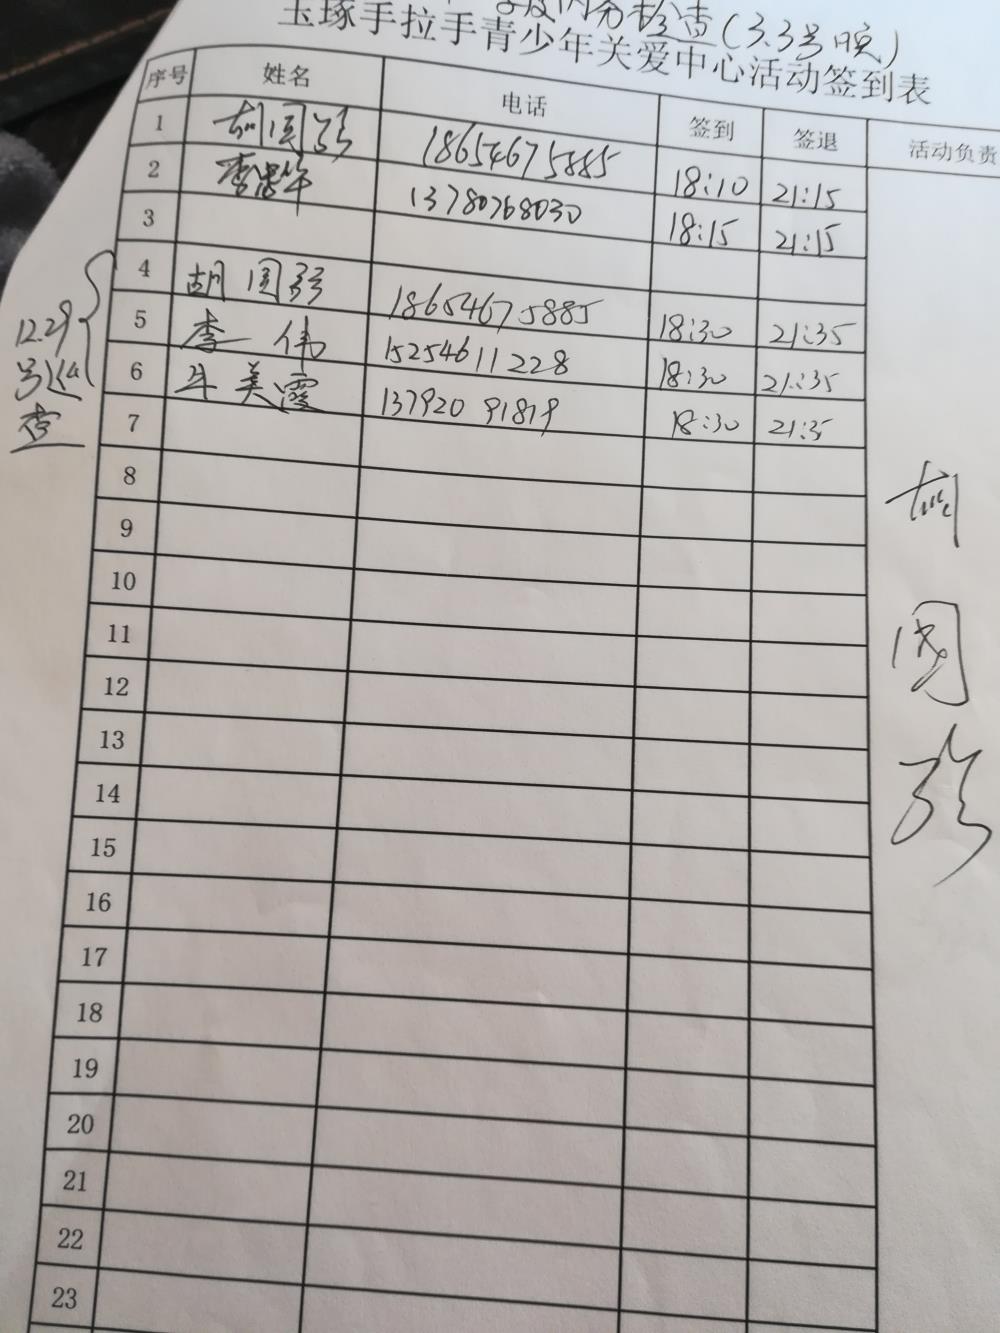 检查(3.3号晚)
玉琢手拉手青少年关爱中心活动签到表
序号 姓名 电话 签到 签退 活动负责
1 胡国强 18654675885 18:10 21:15
2 李 年 13780768030 18:15 21:15
3
4 胡国强 18654675885 18:30 21:35
5 李伟 15254611228 18:30 21:35
6 牛美霞 13792091819 18:30 21:35
7
8
9
10
11
12
13
14
15
16
17
18
19
20
21
22
23
12.29
号巡
查
胡
国
强